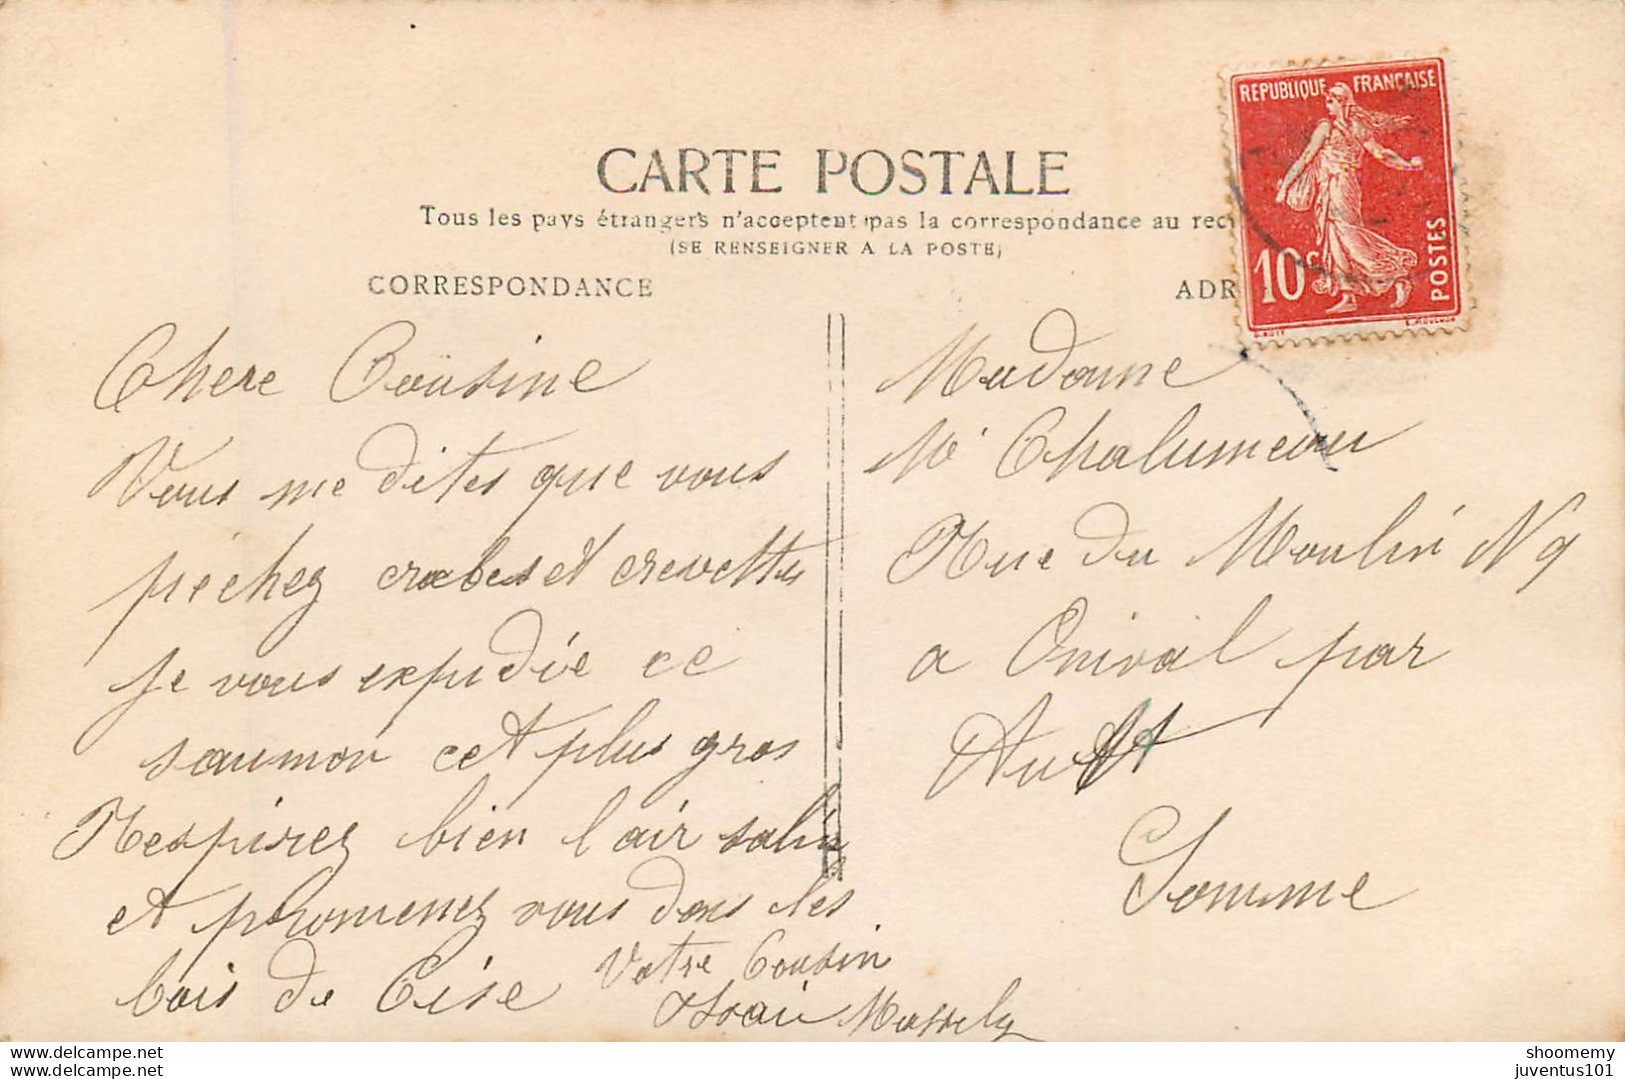 CARTE POSTALE
Tous les pays étrangers n'acceptent pas la correspondance au rec
(SE RENSEIGNER A LA POSTE)
CORRESPONDANCE
ADR
REPUBLIQUE FRANÇAISE
10c
POSTES
O. ROTY
E. MOUCHON
Chere Cousine
Vous me dites que vous
pechez crabes et crevettes
je vous expédie ce
saumon cet plus gros
Respirez bien l'air salin
et promenez vous dans les
bois de Cise
Votre Cousin
Madame
Me Chalumeau
Rue du Moulin N 9
a Onival par
Ault
Somme
www.delcampe.net
www.delcampe.net
shoomemy
juventus101